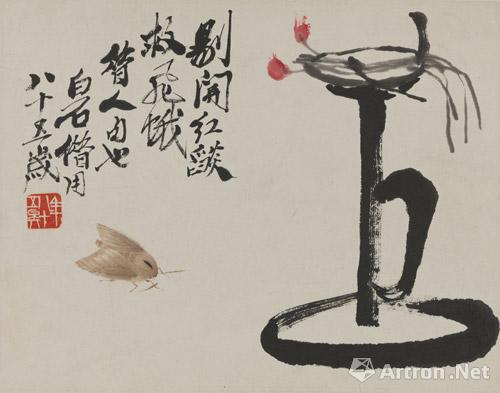 剔開紅燄
救飛蛾
昔人句也
白石借用
八十五歲
Artron.Net